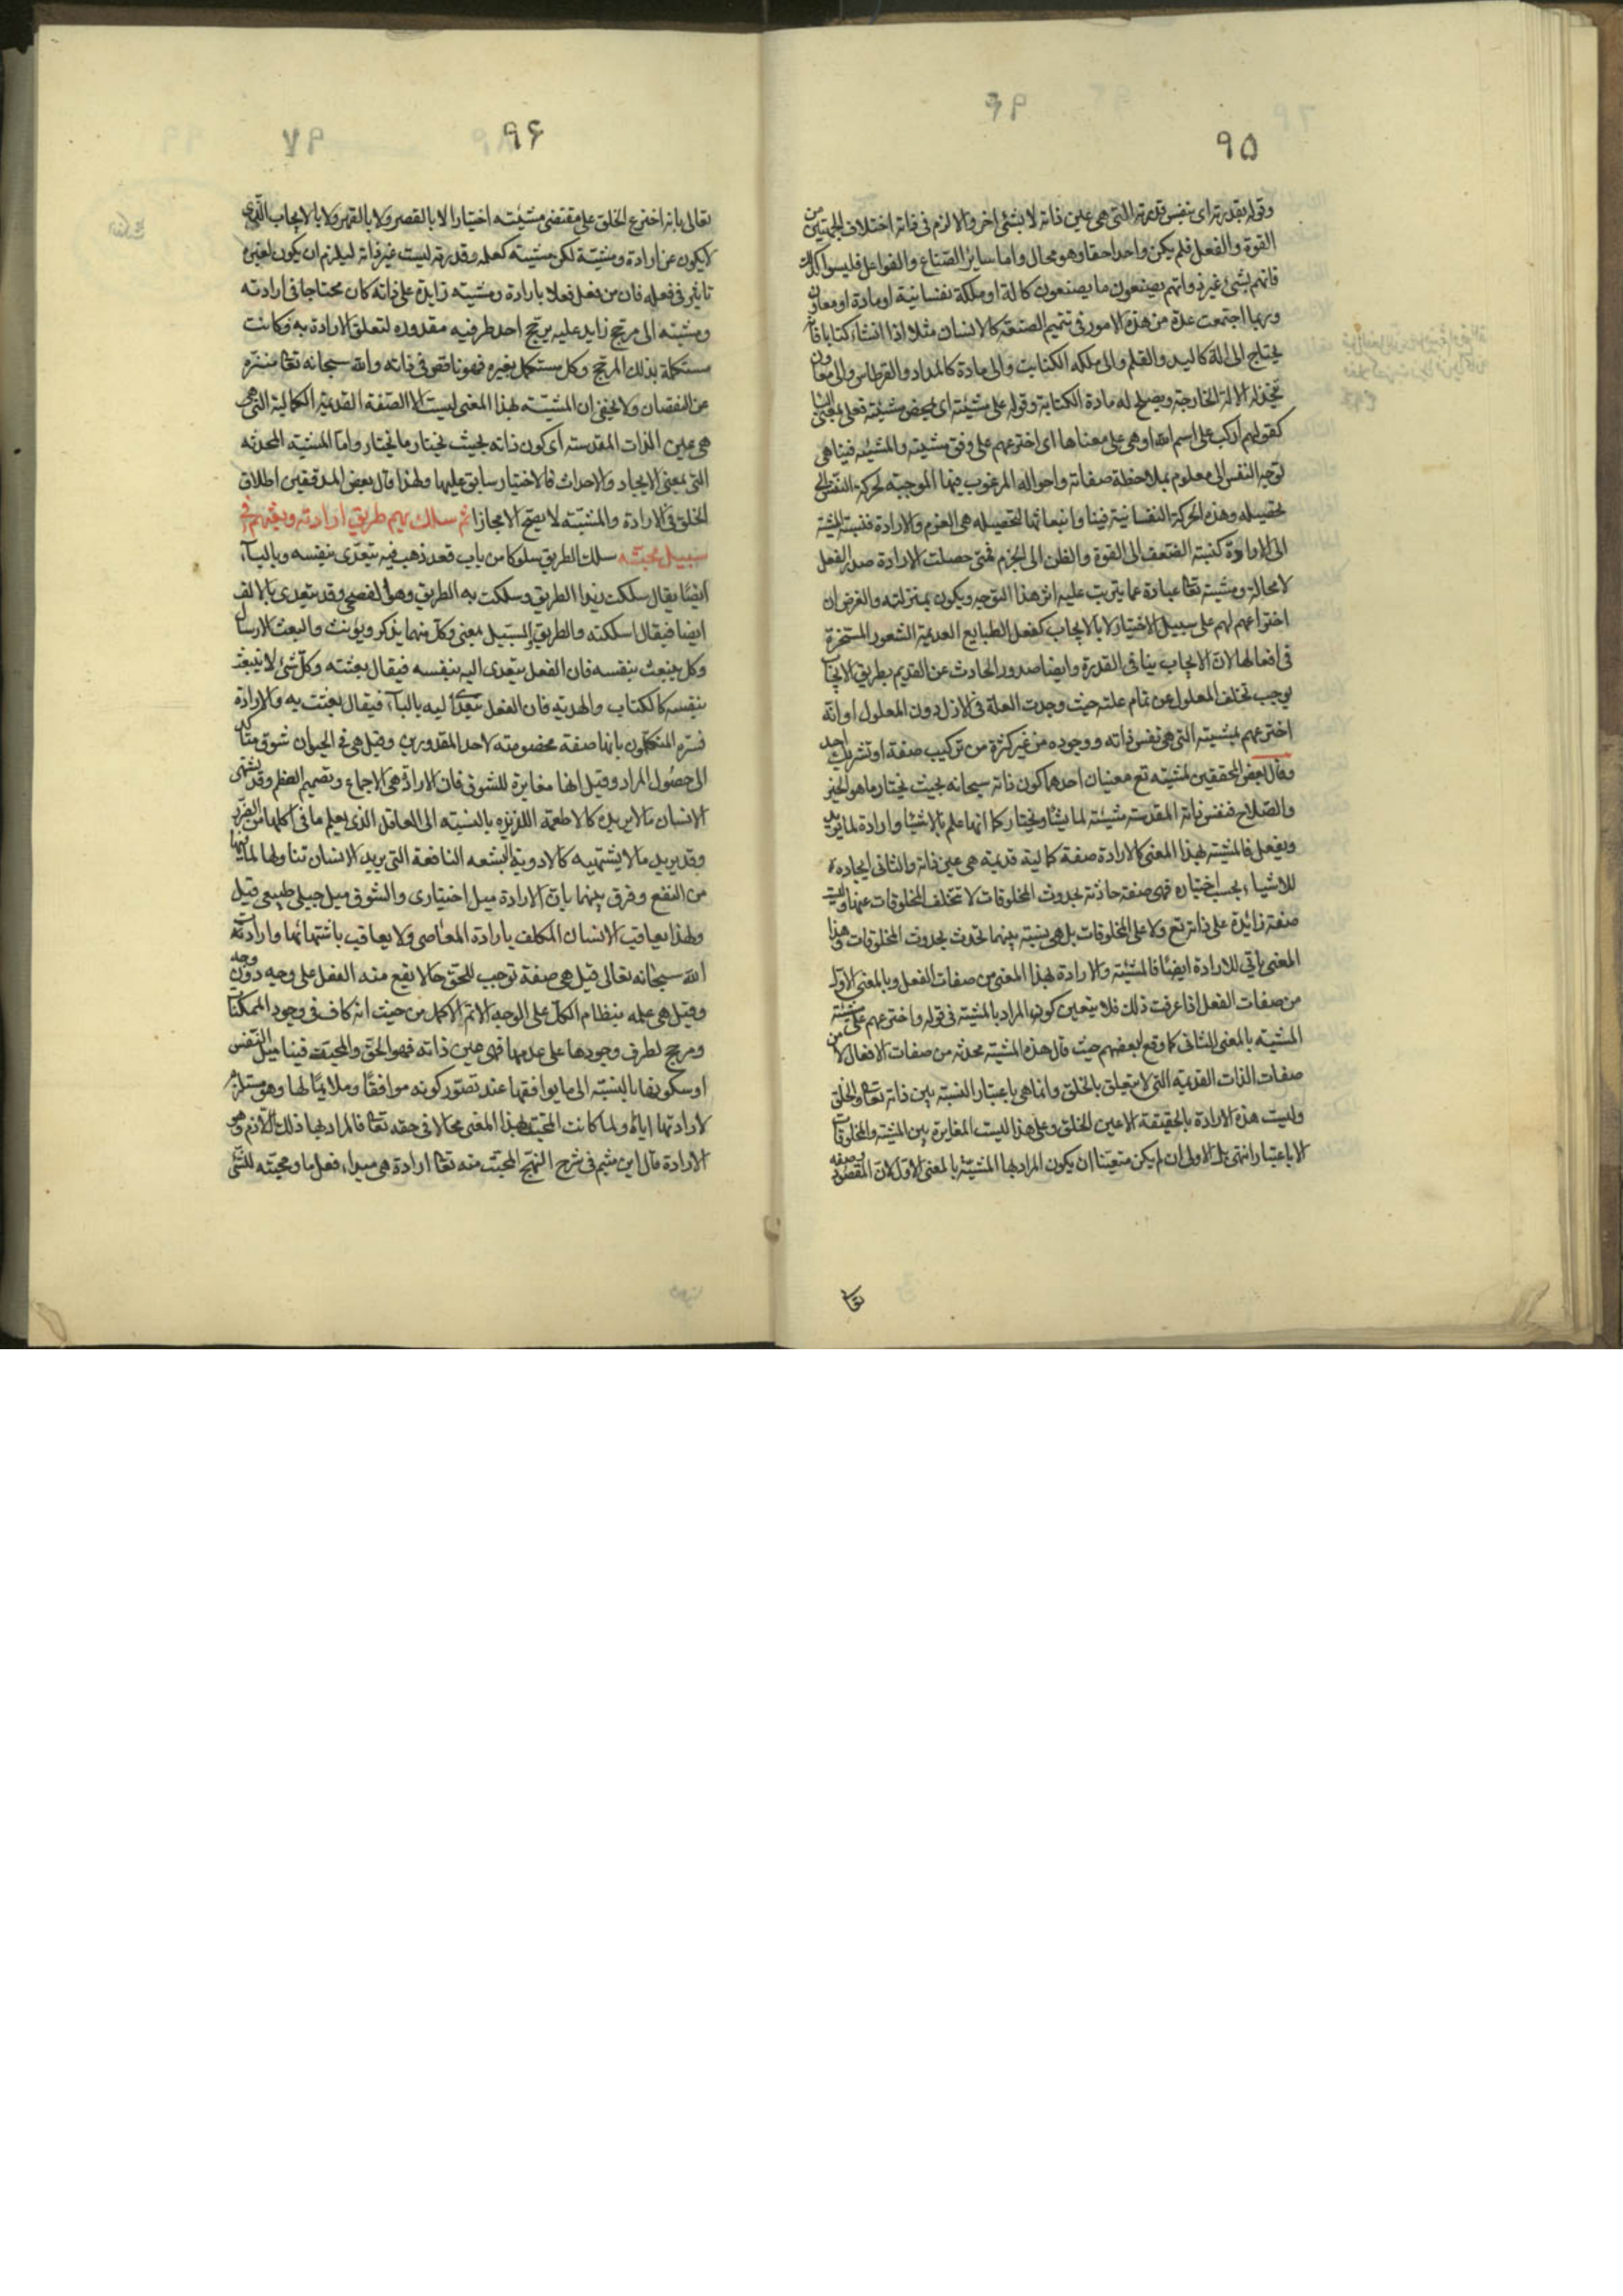 ٩٥
وقوله بقدرته اى بنفس قدرته التى هى عين ذاته لا بشئ اخر والا لزم فى ذاته اختلاف الجهتين من
القوة والفعل فلم يكن واحدا حقا وهو محال واما ساير الصناع والفواعل فليسوا كذلك
فانهم بشئ غير ذواتهم يصنعون ما يصنعون كالة او ملكة نفسانية او مادة او معاون
وربما اجتمعت عدة من هذه الامور فى تتميم الصنعة كالانسان مثلا اذا انشاء كتابا فانه
يحتاج الى الة كاليد والقلم والى ملكه الكتابت والى مادة كالمداد والقرطاس والى معاون
يتخذ له الالة الخارجة ويصلح له مادة الكتابة وقوله على مشيته اى بمحض مشيته فعلى بمعنى الباء
كقولهم اركب على اسم الله او هى على معناها اى اخترعهم على وفق مشيته والمشيئه فينا هى
توجه النفس الى معلوم بملاحظة صفاته واحواله المرغوب فيها الموجبة لحركة النفس الى
تحصيله وهذه الحركة النفسانية فينا وانبعاثها لتحصيله هى العزم والارادة فنسبة المشية
الى الارادة كنسبة الضعف الى القوة والظن الى الجزم فمتى حصلت الارادة صدر الفعل
لا محالة ومشيته تعا عبارة عما يترتب عليه اثر هذا التوجه ويكون بمنزلته والغرض ان
اختراعهم لهم على سبيل الاختيار لا بالايجاب كفعل الطبايع العديمة الشعور المسخرة
فى افعالها لان الايجاب ينافى القدرة وايضا صدور الحادث عن القديم بطريق الايجاب
يوجب تخلف المعلول عن تمام علته حيث وجدت العلة فى الازل دون المعلول او انه
اخترعهم بمشيته التى هى نفس ذاته ووجوده من غير كثرة من تركيب صفة او تشريك احد
وقال بعض المحققين لمشيته تع معنيان احدهما كون ذاته سبحانه بحيث يختار ما هو الخير
والصلاح فنفس ذاته المقدسة مشيئته لما يشاء ويختار كما انها علم بالاشياء وارادة لما يريد
ويفعل فالمشية بهذا المعنى كالارادة صفة كمالية قديمة هى عين ذاته والثانى ايجاده
للاشياء بحسب اختياره فهى صفة حادثة بحدوث المخلوقات لا تتخلف المخلوقات عنها وليست
صفة زائدة على ذاته تع ولا على المخلوقات بل هى نسبة بينهما تحدث بحدوث المخلوقات وهذا
المعنى ياتى للارادة ايضا فالمشيئة والارادة بهذا المعنى من صفات الفعل وبالمعنى الاول
من صفات الفعل اذا عرفت ذلك فلا يتعين كون المراد بالمشية فى قوله واخترعهم على مشيئته
المشيته بالمعنى الثانى كما وقع لبعضهم حيث قال هذه المشية محدثه من صفات الافعال لا من
صفات الذات القديمة التى لا يتعلق بالخلق وانما هى باعتبار النسبة بين ذاته تعا والخلق
وليست هذه الارادة بالحقيقة الا عين الخلق وعلى هذا ليست المغايرة بين المشية والمخلوقات
الا باعتبار انتهى بل الاولى ان لم يكن متعينا ان يكون المراد بها المشية بالمعنى الاول لان المقصود وصفه
تعالى
٩٦
تعالى بانه اخترع الخلق على مقتضى مشيئته اختيارا لا بالقصر ولا بالقهر ولا بالايجاب الذى
لا يكون عن ارادة ومشية لكن مشيته كعلمه وقدرته ليست غير ذاته ليلزم ان يكون لغيره
تاثير فى فعله فان من يفعل فعلا بارادة ومشيته زايدة على ذاته كان محتاجا فى ارادته
ومشيته الى مرجح زايد عليه يرجح احد طرفيه مقدوره لتعلق الارادة به فكانت
مستكملة بذلك المرجح وكل مستكمل بغيره فهو ناقص فى ذاته والله سبحانه تعا منزه
عن النقصان ولا يخفى ان المشية بهذا المعنى ليست الا الصفة القديمة الكمالية التى هى
هى عين الذات المقدسة اى كون ذاته بحيث يختار ما يختار واما المشية المحدثه
التى بمعنى الايجاد والاحداث فالاختيار سابق عليها ولهذا قال بعض المدققين اطلاق
الخلق فى الارادة والمشية لا يصح الا مجازا ثم سلك بهم طريق ارادته وبعثهم فى
سبيل محبته سلك الطريق سلوكا من باب قعد ذهب فيه يتعدى بنفسه وبالباء
ايضا يقال سلكت زيدا الطريق وسلكت به الطريق وهو الفصيح وقد يتعدى بالالف
ايضا فيقال اسلكته والطريق والسبيل بمعنى وكل منهما يذكر ويونث والبعث الارسال
وكل ينبعث بنفسه فان الفعل يتعدى اليه بنفسه فيقال بعثته وكل شئ لا ينبعث
بنفسه كالكتاب والهدية فان الفعل يتعدى اليه بالباء فيقال بعثت به والارادة
فسره المتكلمون بانها صفة مخصوصه لاحد المقدورين وقيل هى فى الحيوان شوق متاكد
الى حصول المراد وقيل انها مغايرة للشوق فان الارادة هى الاجماع وتصميم العظم وقد يشتهى
الانسان ما لا يريده كالاطعمة اللزيزه بالنسبته الى العاقل الذى يعلم ما فى اكلها من الضرر
وقد يريد ما لا يشتهيه كالادوية البشعه النافعة التى يريد الانسان تناولها لما فيها
من النفع وفرق بينهما بان الارادة ميل اختيارى والشوق ميل جبلى طبيعى قيل
ولهذا يعاقب الانسان المكلف بارادة المعاصى ولا يعاقب باشتهائها وارادته
الله سبحانه تعالى قيل هى صفة توجب للحق حالا يقع منه الفعل على وجه دون وجه
وقيل هى علمه بنظام الكل على الوجه الاتم الاكمل من حيث انه كاف فى وجود الممكنات
ومرجح لطرف وجودها على عدمها فهى عين ذاته فهو الحق والمحبت فينا ميل النفس
او سكونها بالنسبته الى ما يوافقها عند تصور كونه موافقا وملايما لها وهو مستلزم
لارادتها اياه ولما كانت المحبت بهذا المعنى محالا فى حقه تعا فالمراد بها ذلك اللازم وهو
الارادة قال ابن ميثم فى شرح النهج المحبت منه تعا ارادة هى مبدأ فعل ما ومحبته للشئ